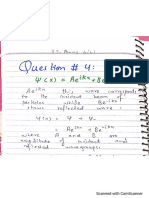 Question # 4:
ψ(x) = Ae^ikx + Be
Ae^ikx this wave corresponds
to the incident beam of
particles while Be^-ikx
shows reflected wave
= Ae^ikx + Be^-ikx
where A and B are
amplitude of incident and
reflected
Scanned with CamScanner